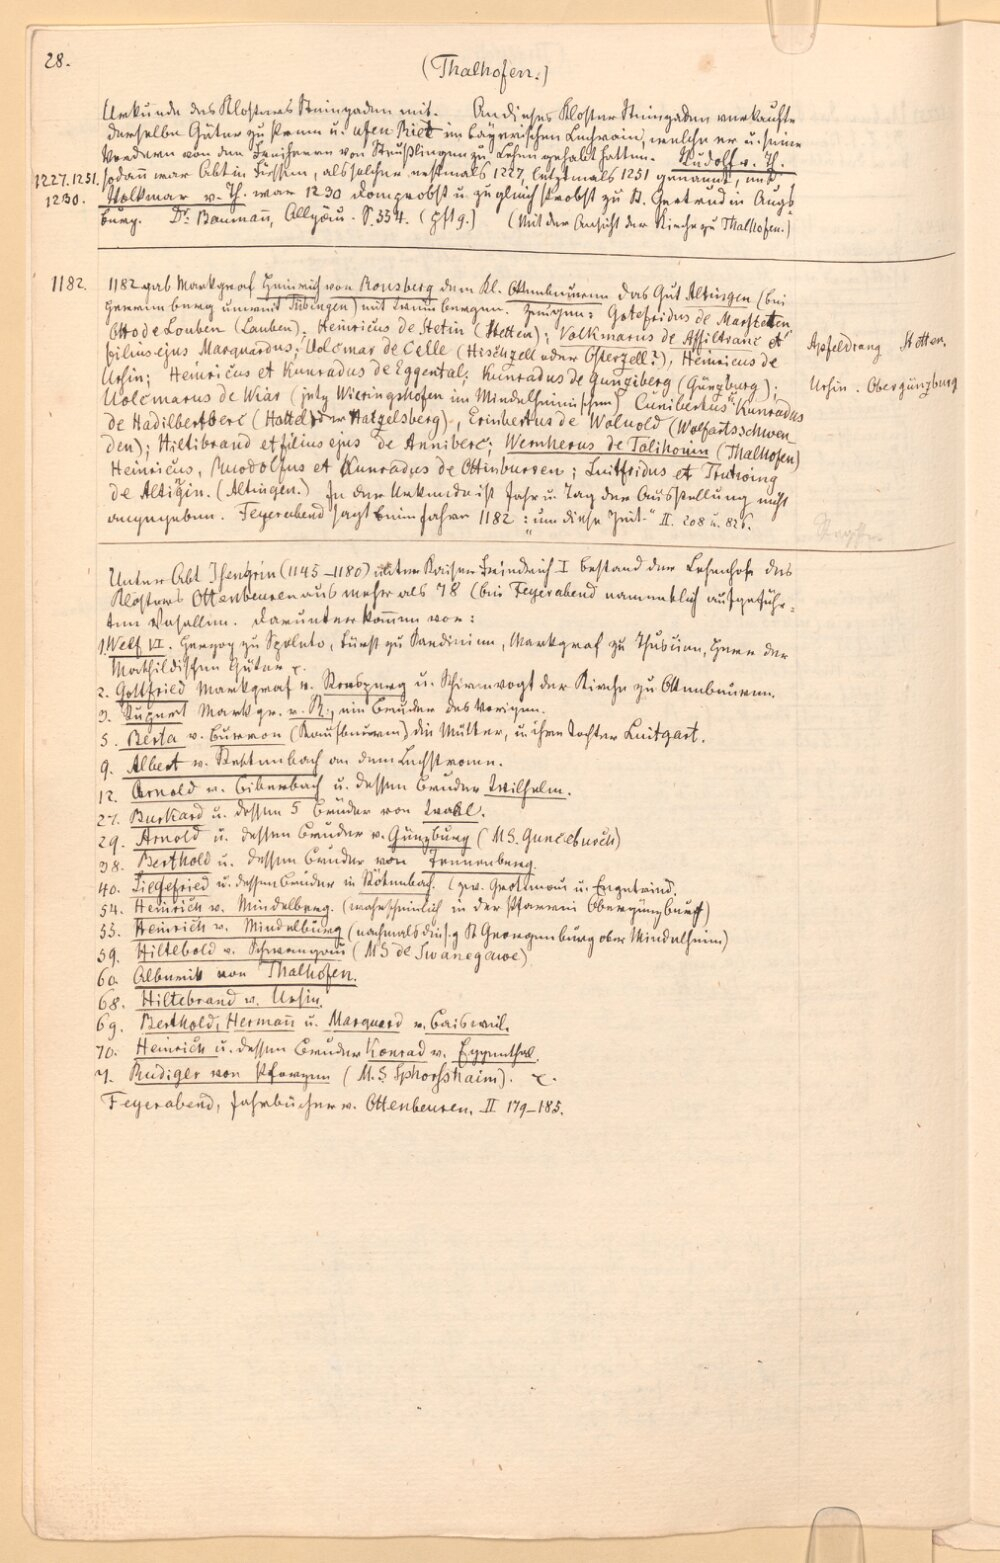 28.
(Thalhofen.)
Urkunde des Klosters Steingaden mit. An dieses Kloster Steingaden verkaufte
derselbe Güter zu Prem u. ufen Riet im bayerischen Lechrain, welche er u. seine
Vordern von den Freiherren von Steußlingen zu Lehen gehabt hatten. Ludolf v. Th.
1227. 1251. sodañ war Abt in Füssen, als solcher erstmals 1227, letztmals 1251 genannt, und
1230. Volkmar v. Th. war 1230 Domprobst u. zugleich Probst zu St. Gertrud in Augs-
burg. Dr. Baumañ, Allgäu. S. 554. (Hft 9.) (Mit der Ansicht der Kirche zu Thalhofen.)
1182. 1182 gab Markgraf Heinrich von Ronsberg dem Kl. Ottenbeuren das Gut Altingen (bei
Herrenberg unweit Tübingen) mit Leuten Zeugen: Gotefridus de Marstetten
Otto de Louben (Lauben), Heinricus de Stetin (Stetten); Volkmarus de Affiltranc et
filius ejus Marquardus; Uolcmar de Celle (Hisenzell oder Osterzell?), Heinricus de
Apfeldrang Stetten.
Ursin; Heinricus et Kunradus de Eggental; Kunradus de Gunziberg (Günzburg);
Ursin. Obergünzburg
Uolcmarus de Wiar (jetzt Wieringshofen im Mindelheimischen) Cunibertus et Kunradus
de Hadilbertberc (Hattel oder Hatzelsberg)., Erinbertus de Woluold (Wolfartsschwen
den); Hiltibrand et filius ejus de Anniberc; Wernherus de Talihouin (Thalhofen)
Heinricus, Ruodolfus et Kunradus de Ottinburren; Luitfridus et Trutwing
de Altigin. (Altingen.) In der Urkunde ist Jahr u. Tag der Ausstellung nicht
angegeben. Feyerabend sagt beim Jahre 1182: „um diese Zeit" II. 208 u. 826.
Unter Abt Isengrin (1145–1180) unter Kaiser Friedrich I bestand der Lehenhof des
Klosters Ottenbeuren aus mehr als 78 (bei Feyerabend namentlich aufgeführ-
ten Vasallen. Darunter kommen vor:
1. Welf VI. Herzog zu Spoleto, Fürst zu Sardinien, Markgraf zu Thuscien, Herr der
Mathildischen Güter
2. Gottfried Markgraf v. Ronsperg u. Schirmvogt der Kirche zu Ottenbeuren.
3. Rupert Markgr. v. R., ein Bruder des Vorigen.
5. Berta v. Burron (Kaufbeuren) die Mutter, u. ihre Tochter Luitgart.
9. Albert v. Rettenbach an dem Lechstrome.
12. Arnold v. Biberbach u. dessen Bruder Wilhelm.
27. Burkard u. dessen 5 Brüder von Waal.
29. Arnold u. dessen Bruder v. Günzburg (MS. Guncebursch)
38. Berthold u. dessen Bruder von Tennenberg.
40. Siegefried u. dessen Bruder in Rötenbach. (zw. u. Engetried.
54. Heinrich v. Mindelberg. (wahrscheinlich in der Pfarrei Obergünzburg)
55. Heinrich v. Mindelburg (nachmals die s. g. St Georgenburg ober Mindelheim)
59. Hiltebold v. Schwangau (MS de Swanegawe)
60. Alberick von Thalhofen.
68. Hiltebrand v. Ursin.
69. Berthold, Hermañ u. Marquard v. Baisweil.
70. Heinrich u. dessen Bruder Konrad v. Eggenthal.
7. Rudiger von Pforzen (M.S. Sphorshaim).
Feyerabend, Jahrbücher v. Ottenbeuren, II 179–185.